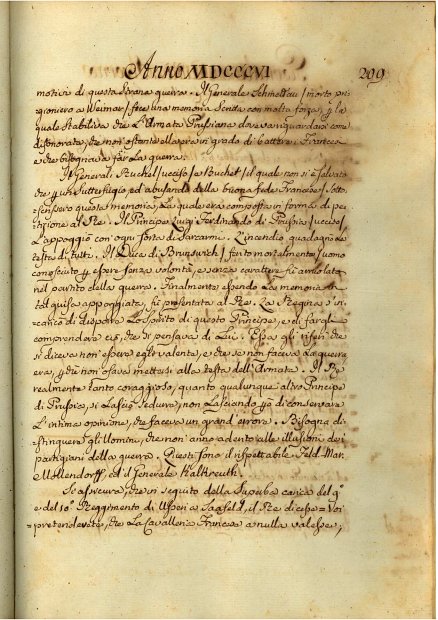 Anno MDCCCVI
209
motivi di questa strana guerra. Il Generale Schmettau /morto pri-
gioniero a Weimar/ fece una memoria scritta con molta forza, la
quale stabiliva che l'Armata Prussiana doveva riguardarsi come
disonorata, che non ostante ella era in grado di battere i Francesi
e che bisognava far la guerra.
I Generali Ruchel /ucciso/ e Buchet /il quale non si è salvato
che per sutterfugio, ed abusando della buona fede Francese/ sotto-
scrissero questa memoria, la quale era composta in forma di pe-
tizione al Re. Il Principe Luigi Ferdinando di Prussia /ucciso/
l'appoggiò con ogni sorta di Sarcasmi. L'incendio guadagnò le
teste di tutti. Il Duca di Brunsvich /ferito mortalmente/ uomo
conosciuto per essere senza volontà, e senza carattere fù arrolato
nel partito della guerra. Finalmente essendo la memoria in
tal guisa appoggiata, fù presentata al Re. La Regina s'in-
caricò di disporre lo spirito di questo Principe, e di fargli
comprendere ciò, che si pensava di Lui. Essa gli riferì che
si diceva non essere egli valente, e che se non faceva la guerra
era, perchè non osava mettersi alla testa dell'Armata. Il Re
realmente tanto coraggioso, quanto qualunque altro Principe
di Prussia, si lasciò sedurre, non lasciando però di conservare
l'intima opinione, che faceva un grand'errore. Bisogna di-
stinguere gli Uomini, che non anno aderito alle illusioni dei
partigiani della guerra. Questi sono il rispettabile Feld-Mar.
Mollendorff, ed il Generale Kalkreuth.
Si assicura, che in seguito della superba carica del 9°
e del 10° Reggimento di Usseri a Saafeld, il Re dicesse = Voi
pretendevate, che la Cavalleria Francese a nulla valesse,